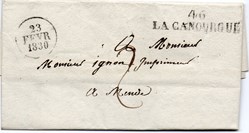 23
FEVR
1830
46
LA CANOURGUE
A Monsieur
Monsieur ignon Imprimeur
2
a Mende